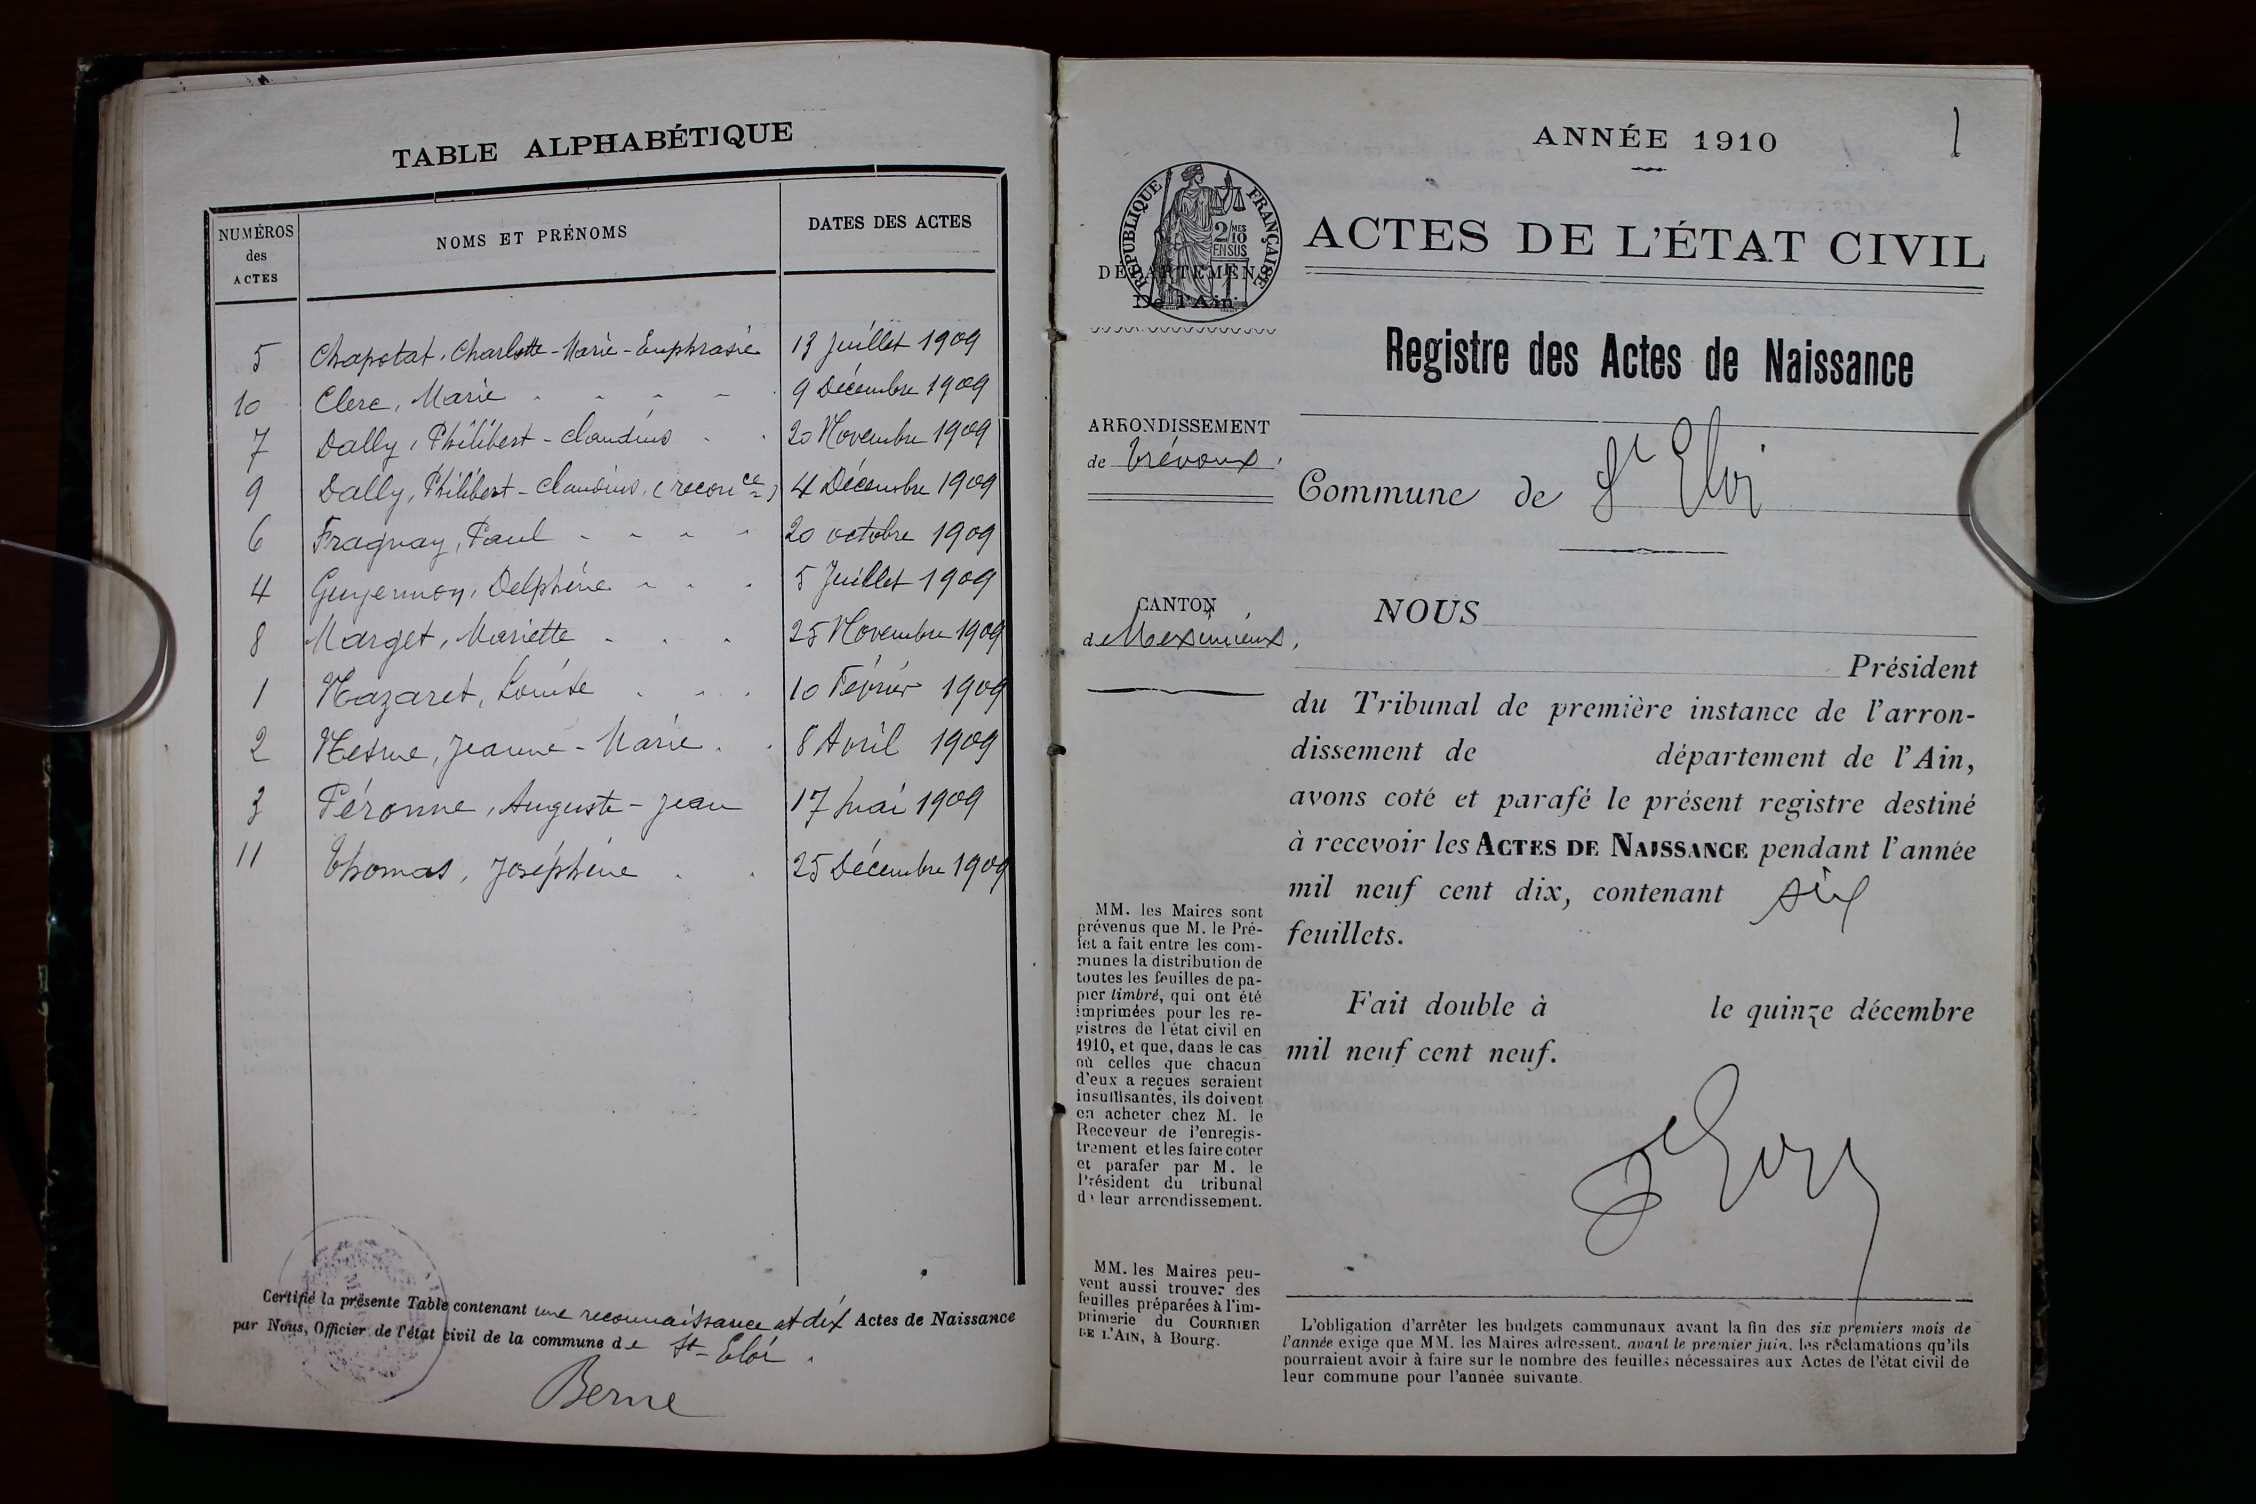 TABLE ALPHABÉTIQUE
NUMÉROS des ACTES NOMS ET PRÉNOMS DATES DES ACTES
5 Chapotat, Charlotte-Marie-Euphrasie 13 Juillet 1909
10 Clerc, Marie 9 Décembre 1909
7 Dally, Philibert-Claudius 20 Novembre 1909
9 Dally, Philibert-Claudius, (reconce) 4 Décembre 1909
6 Fragnay, Paul 20 octobre 1909
4 Guyennon, Delphine 5 Juillet 1909
8 Marget, Mariette 25 Novembre 1909
1 Nazaret, Louise 10 Février 1909
2 Nesme, Jeanne-Marie 8 Avril 1909
3 Péronne, Auguste-Jean 17 Mai 1909
11 Thomas, Joséphine 25 Décembre 1909
Certifié la présente Table contenant une reconnaissance et dix Actes de Naissance
par Nous, Officier de l'état civil de la commune de St-Eloi.
Berne
1
ANNÉE 1910
RÉPUBLIQUE FRANÇAISE
2/10 MES
EN SUS
DÉPARTEMENT
De l'Ain
ACTES DE L'ÉTAT CIVIL
Registre des Actes de Naissance
ARRONDISSEMENT
de Trévoux.
Commune de St Eloi
CANTON
de Meximieux.
NOUS
Président
du Tribunal de première instance de l'arron-
dissement de département de l'Ain,
avons coté et parafé le présent registre destiné
à recevoir les ACTES DE NAISSANCE pendant l'année
mil neuf cent dix, contenant six
feuillets.
Fait double à le quinze décembre
mil neuf cent neuf.
MM. les Maires sont
prévenus que M. le Pré-
fet a fait entre les com-
munes la distribution de
toutes les feuilles de pa-
pier timbré, qui ont été
imprimées pour les re-
gistres de l'état civil en
1910, et que, dans le cas
où celles que chacun
d'eux a reçues seraient
insuffisantes, ils doivent
en acheter chez M. le
Receveur de l'enregis-
trement et les faire coter
et parafer par M. le
Président du tribunal
de leur arrondissement.
MM. les Maires peu-
vent aussi trouver des
feuilles préparées à l'im-
primerie du COURRIER
DE L'AIN, à Bourg.
L'obligation d'arrêter les budgets communaux avant la fin des six premiers mois de
l'année exige que MM. les Maires adressent, avant le premier juin, les réclamations qu'ils
pourraient avoir à faire sur le nombre des feuilles nécessaires aux Actes de l'état civil de
leur commune pour l'année suivante.